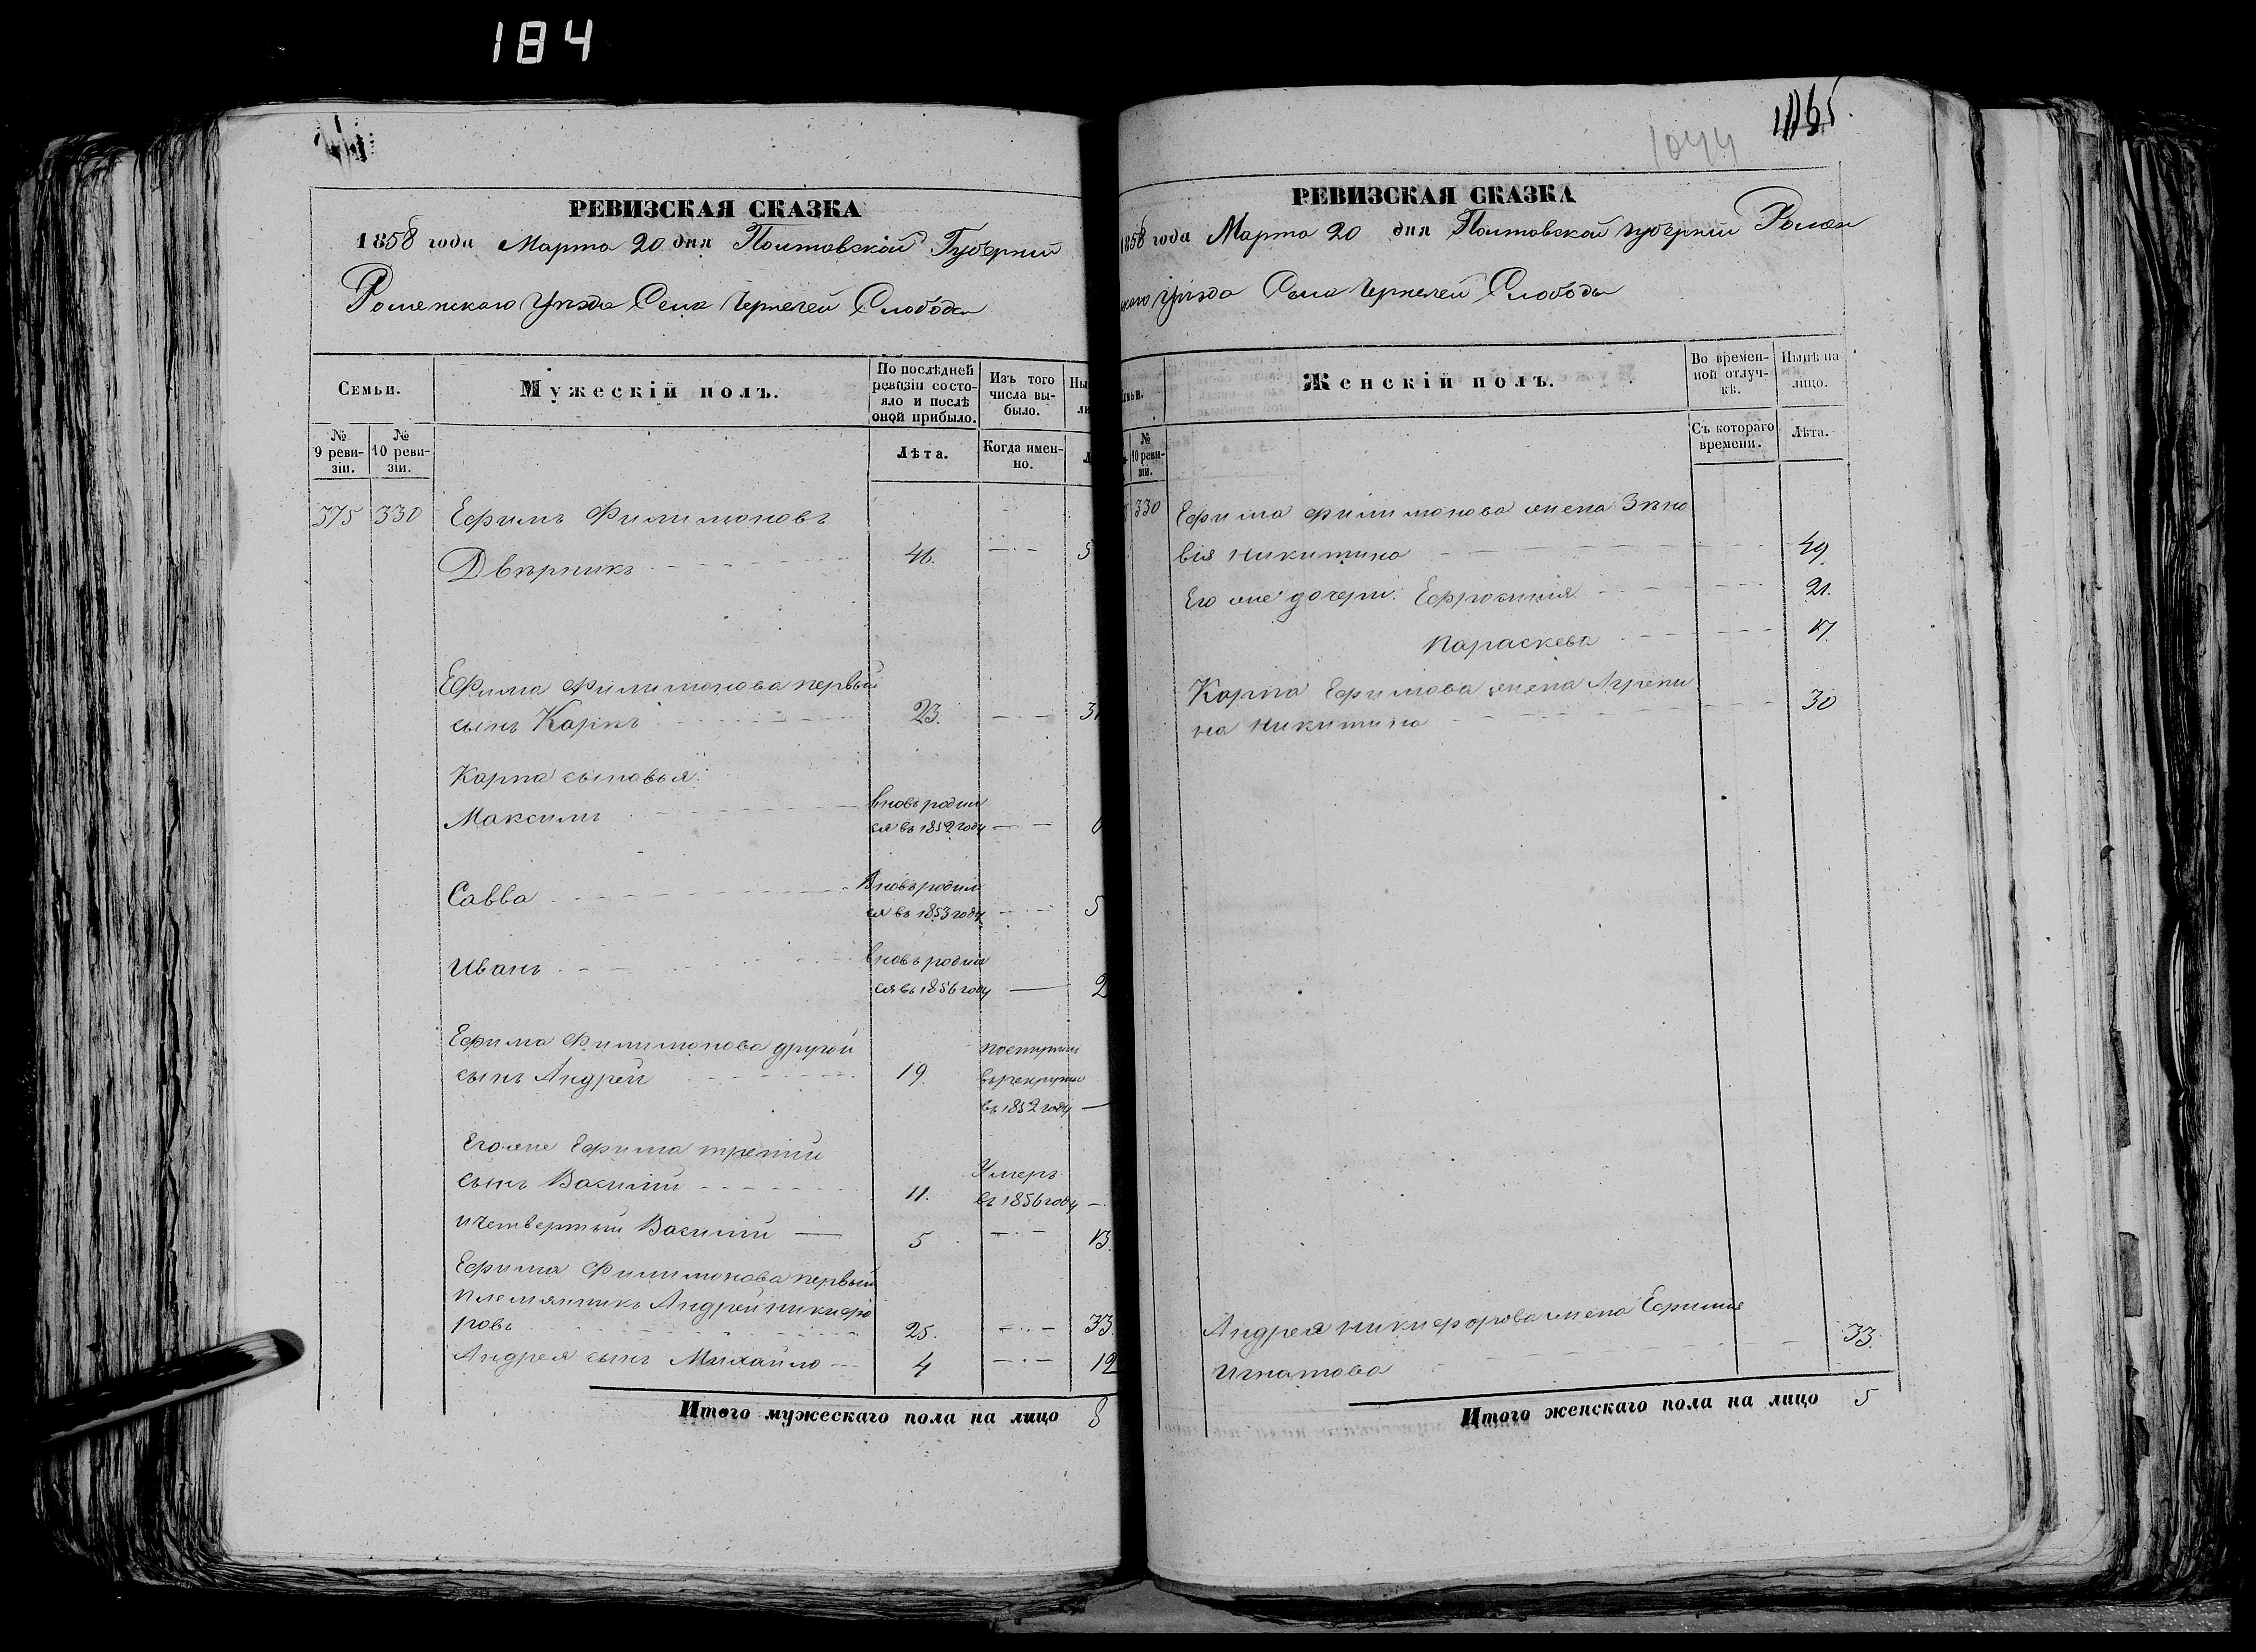 184
РЕВИЗСКАЯ СКАЗКА
1858 года Марта 20 дня Полтавской Губерніи
Роменскаго Уѣзда Села Чернечей Слободы
Семьи.
Мужескій полъ.
По послѣдней ревизіи состояло и послѣ оной прибыло.
Изъ того числа выбыло.
№ 9 ревизіи.
№ 10 ревизіи.
Лѣта.
Когда именно.
375 330 Ефимъ Филимоновъ
Двѣрникъ 46. 5
Ефима Филимонова первый
сынъ Карпъ 23. 31
Карпа сыновья:
Максимъ
вновь родил
ся въ 1852 году
Савва
Вновь родил
ся въ 1853 году 5
Иванъ
вновь родил
ся въ 1856 году 2
Ефима Филимонова другой
сынъ Андрей 19.
поступилъ
въ рекруты
въ 1852 году
Его же Ефима третій
сынъ Василій 11.
Умеръ
въ 1856 году
и четвертый Василій 5 13.
Ефима Филимонова первый
племянникъ Андрей Никифо
ровъ 25. 33.
Андрея сынъ Михайло 4 12
Итого мужескаго пола на лицо 8
1044
РЕВИЗСКАЯ СКАЗКА
1858 года Марта 20 дня Полтавской губерніи Ромен
скаго Уѣзда Села Чернечей Слободы
Женскій полъ.
Во временной отлучкѣ.
Нынѣ на лицо.
№ 10 ревизіи.
Съ котораго времени.
Лѣта.
330 Ефима Филимонова жена Зѣно
вія Никитина 49.
Его же дочери: Ефросинія 21.
Параскева 17.
Карпа Ефимова жена Агрепи
на Никитина 30
Андрея Никифорова жена Ефимія
Игнатова 33.
Итого женскаго пола на лицо 5